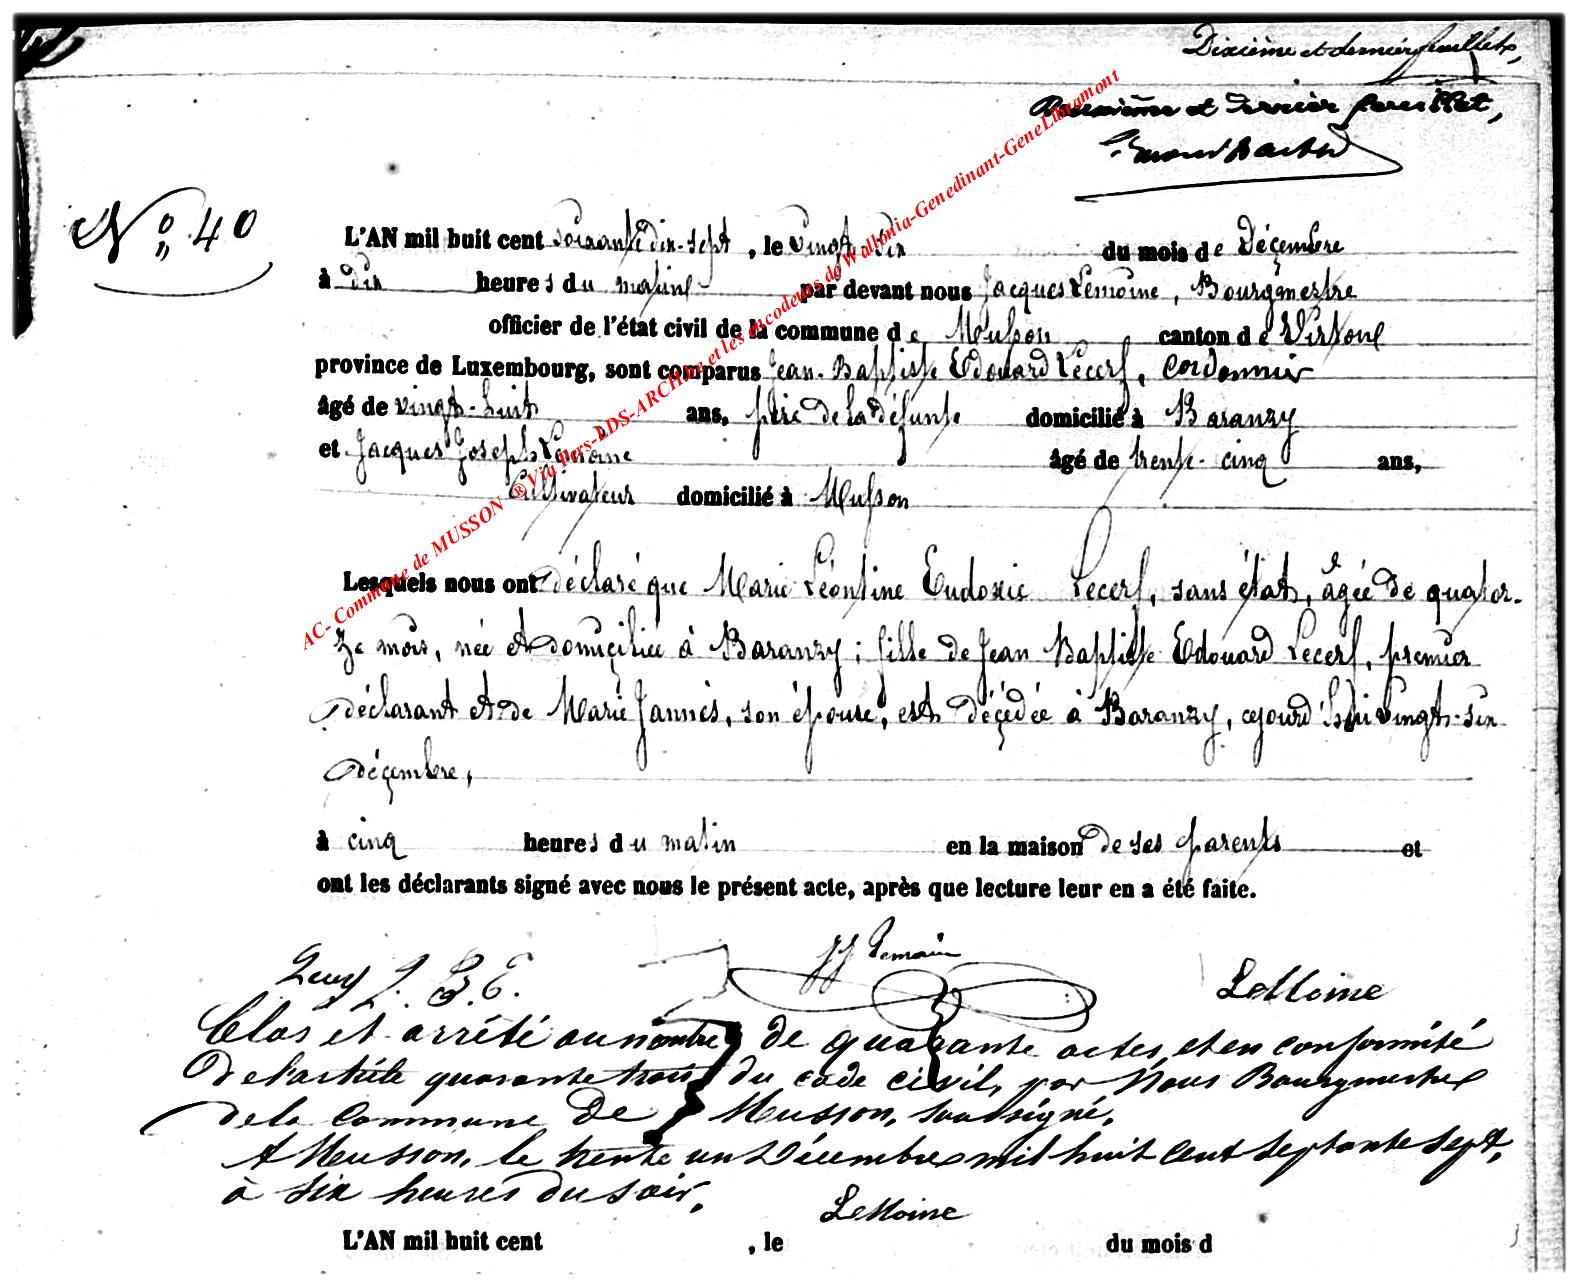 Dixième et dernier feuillet,
Deuxième et dernier feuillet,
No 40
L'AN mil huit cent soixante dix-sept, le vingt-six du mois de Décembre
à dix heures du matin par devant nous Jacques Lemoine, Bourgmestre
officier de l'état civil de la commune de Musson canton de Virton
province de Luxembourg, sont comparus Jean-Baptiste Edouard Lecerf, cordonnier
âgé de vingt-huit ans, père de la défunte domicilié à Baranzy
et Jacques Joseph âgé de trente-cinq ans,
Cultivateur domicilié à Musson
AC- Commune de MUSSON ® Via Pers-LDS-ARCHive et les encodeurs de Wallonia-Genedinant-GeneLibramont
Lesquels nous ont déclaré que Marie Léontine Eudoxie Lecerf, sans état, âgée de quator-
ze mois, née et domiciliée à Baranzy ; fille de Jean Baptiste Edouard Lecerf, premier
déclarant et de Marie Jannès, son épouse, est décédée à Baranzy, cejourd'hui vingt-six
décembre,
à cinq heures du matin en la maison de ses parents et
ont les déclarants signé avec nous le présent acte, après que lecture leur en a été faite.
J. B. E. JJ LeMoine
Clos et arrêté au nombre de quarante actes, et en conformité
de l'article quarante trois du code civil, par Nous Bourgmestre
de la commune de Musson, soussigné.
A Musson, le trente un Décembre mil huit cent septante sept,
à six heures du soir.
LeMoine
L'AN mil huit cent , le du mois d